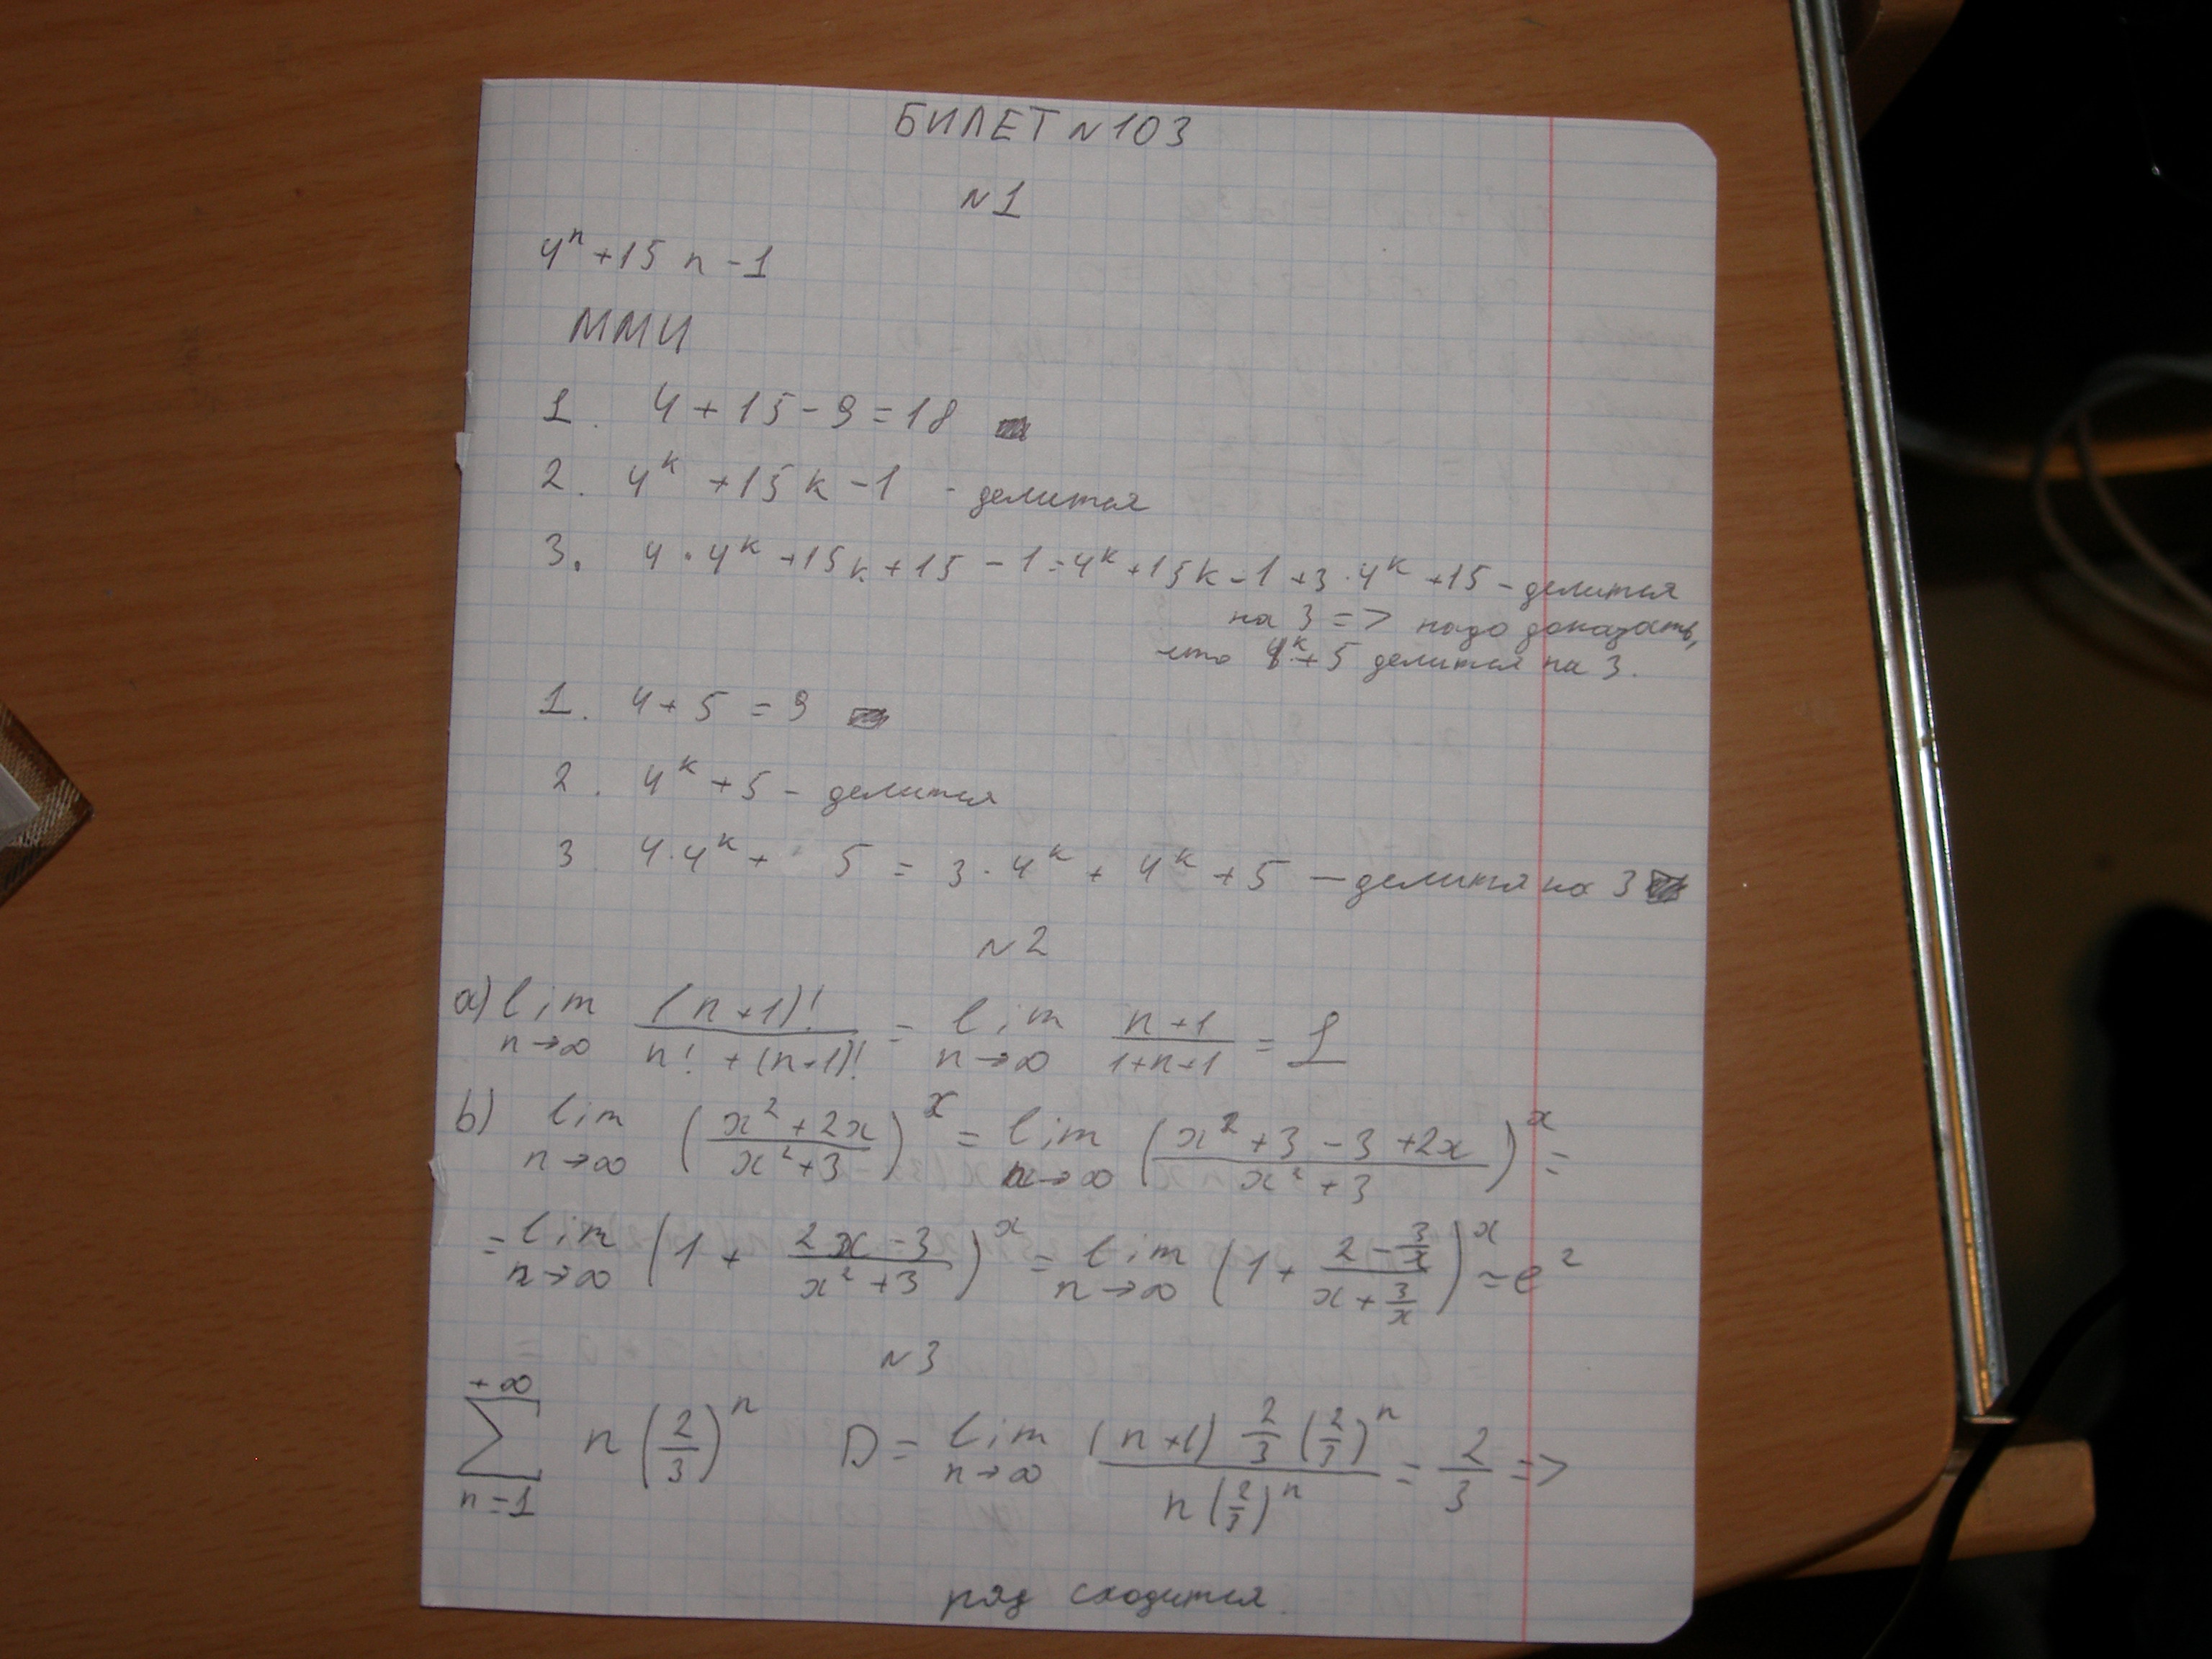 БИЛЕТ N 103
N 1
4ⁿ + 15 n - 1
ММИ
1. 4 + 15 - 9 = 18
2. 4ᵏ + 15 k - 1 - делится
3. 4 · 4ᵏ + 15k + 15 - 1 = 4ᵏ + 15k - 1 + 3 · 4ᵏ + 15 - делится
на 3 => надо доказать,
что 4ᵏ + 5 делится на 3.
1. 4 + 5 = 9
2. 4ᵏ + 5 - делится
3 4 · 4ᵏ + 5 = 3 · 4ᵏ + 4ᵏ + 5 — делится на 3
N 2
a) lim n→∞ (n+1)! / (n! + (n+1)!) = lim n→∞ (n+1) / (1+n+1) = 1
b) lim n→∞ ((x² + 2x) / (x² + 3))ˣ = lim n→∞ ((x² + 3 - 3 + 2x) / (x² + 3))ˣ =
= lim n→∞ (1 + (2x - 3) / (x² + 3))ˣ = lim n→∞ (1 + (2 - 3/x) / (x + 3/x))ˣ = e²
N 3
∑ n=1 +∞ n (2/3)ⁿ D = lim n→∞ ((n+1) 2/3 (2/3)ⁿ) / (n (2/3)ⁿ) = 2/3 =>
ряд сходится